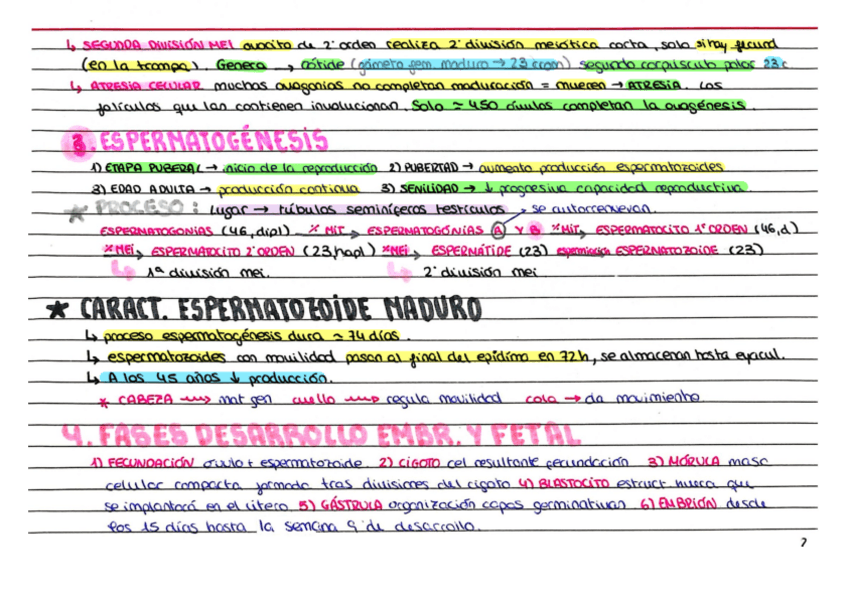 ↳ SEGUNDA DIVISIÓN MEI ovocito de 2º orden realiza 2ª división meiótica corta, solo si hay fecund
(en la trompa). Genera → oótide (gameto fem maduro → 23 crom) segundo corpúsculo polar 23c
↳ ATRESIA CELULAR muchas ovogonias no completan maduración = mueren → ATRESIA. Los
folículos que las contienen involucionan. Solo ≃ 450 óvulos completan la ovogénesis.
3. ESPERMATOGÉNESIS
1) ETAPA PUBERAL → inicio de la reproducción 2) PUBERTAD → aumenta producción espermatozoides
3) EDAD ADULTA → producción continua 3) SENILIDAD → ↓ progresiva capacidad reproductiva.
* PROCESO: Lugar → túbulos seminíferos testículos → se autorrenuevan.
ESPERMATOGONIAS (46, dipl) * MIT → ESPERMATOGONIAS A Y B *MIT → ESPERMATOCITO 1º ORDEN (46,d)
*MEI → ESPERMATOCITO 2º ORDEN (23, hapl) *MEI → ESPERNÁTIDE (23) ESPERNATOZOIDE (23)
↳ 1ª división mei. ↳ 2ª división mei
* CARACT. ESPERMATOZOIDE MADURO
↳ proceso espermatogénesis dura ≃ 74 días.
↳ espermatozoides con movilidad pasan al final del epidimo en 72h, se almacenan hasta eyacul.
↳ A los 45 años ↓ producción.
* CABEZA → mat gen cuello → regula movilidad cola → da movimiento.
4. FASES DESARROLLO EMBR. Y FETAL
1) FECUNDACIÓN óvulo + espermatozoide. 2) CIGOTO cel resultante fecundación 3) MÓRULA masa
celular compacta formada tras divisiones del cigoto 4) BLASTOCITO estruct hueca que
se implantará en el útero 5) GÁSTRULA organización capas germinativas 6) EMBRIÓN desde
los 15 días hasta la semana 9 de desarrollo.
7